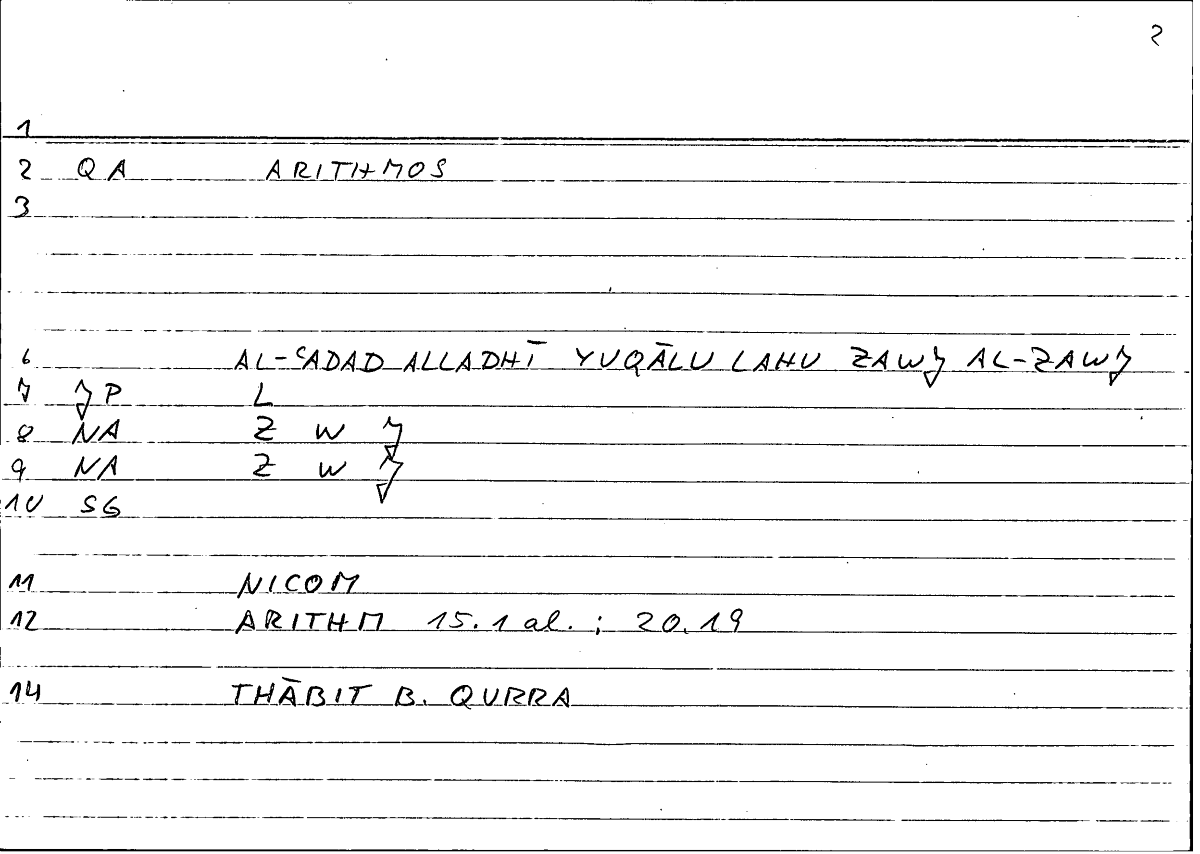 2
1
2 QA ARITHMOS
3
6 AL-ʿADAD ALLADHĪ YUQĀLU LAHU ZAWJ AL-ZAWJ
7 JP L
8 NA Z W J
9 NA Z W J
10 SG
11 NICOM
12 ARITHM 15.1 al. ; 20.19
14 THĀBIT B. QURRA